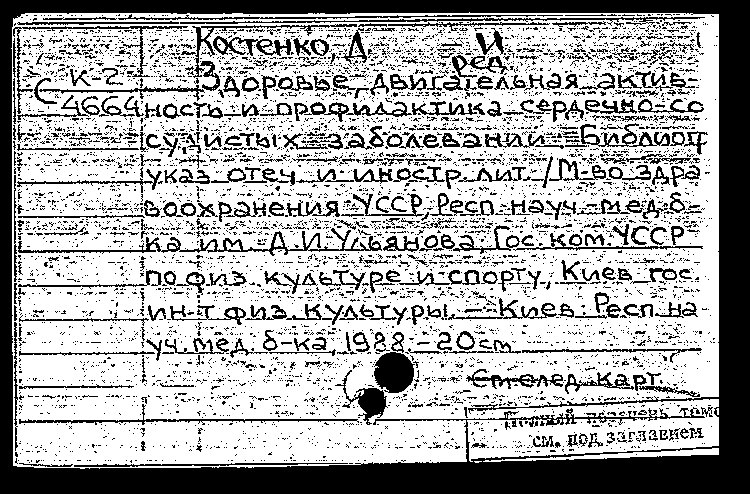 Костенко, Д И
ред
С К-2
4664
Здоровье, двигательная актив-
ность и профилактика сердечно-со
судистых заболеваний Библиогр
указ отеч и иностр лит /М-во здра-
воохранения УССР, Респ науч-мед б-
ка им. Д.И.Ульянова, Гос. ком. УССР
по физ культуре и спорту, Киев гос.
ин-т физ. культуры. – Киев: Респ на
уч. мед б-ка, 1988 - 20cm
См след карт.
Полный перечень томо
см. под заглавием